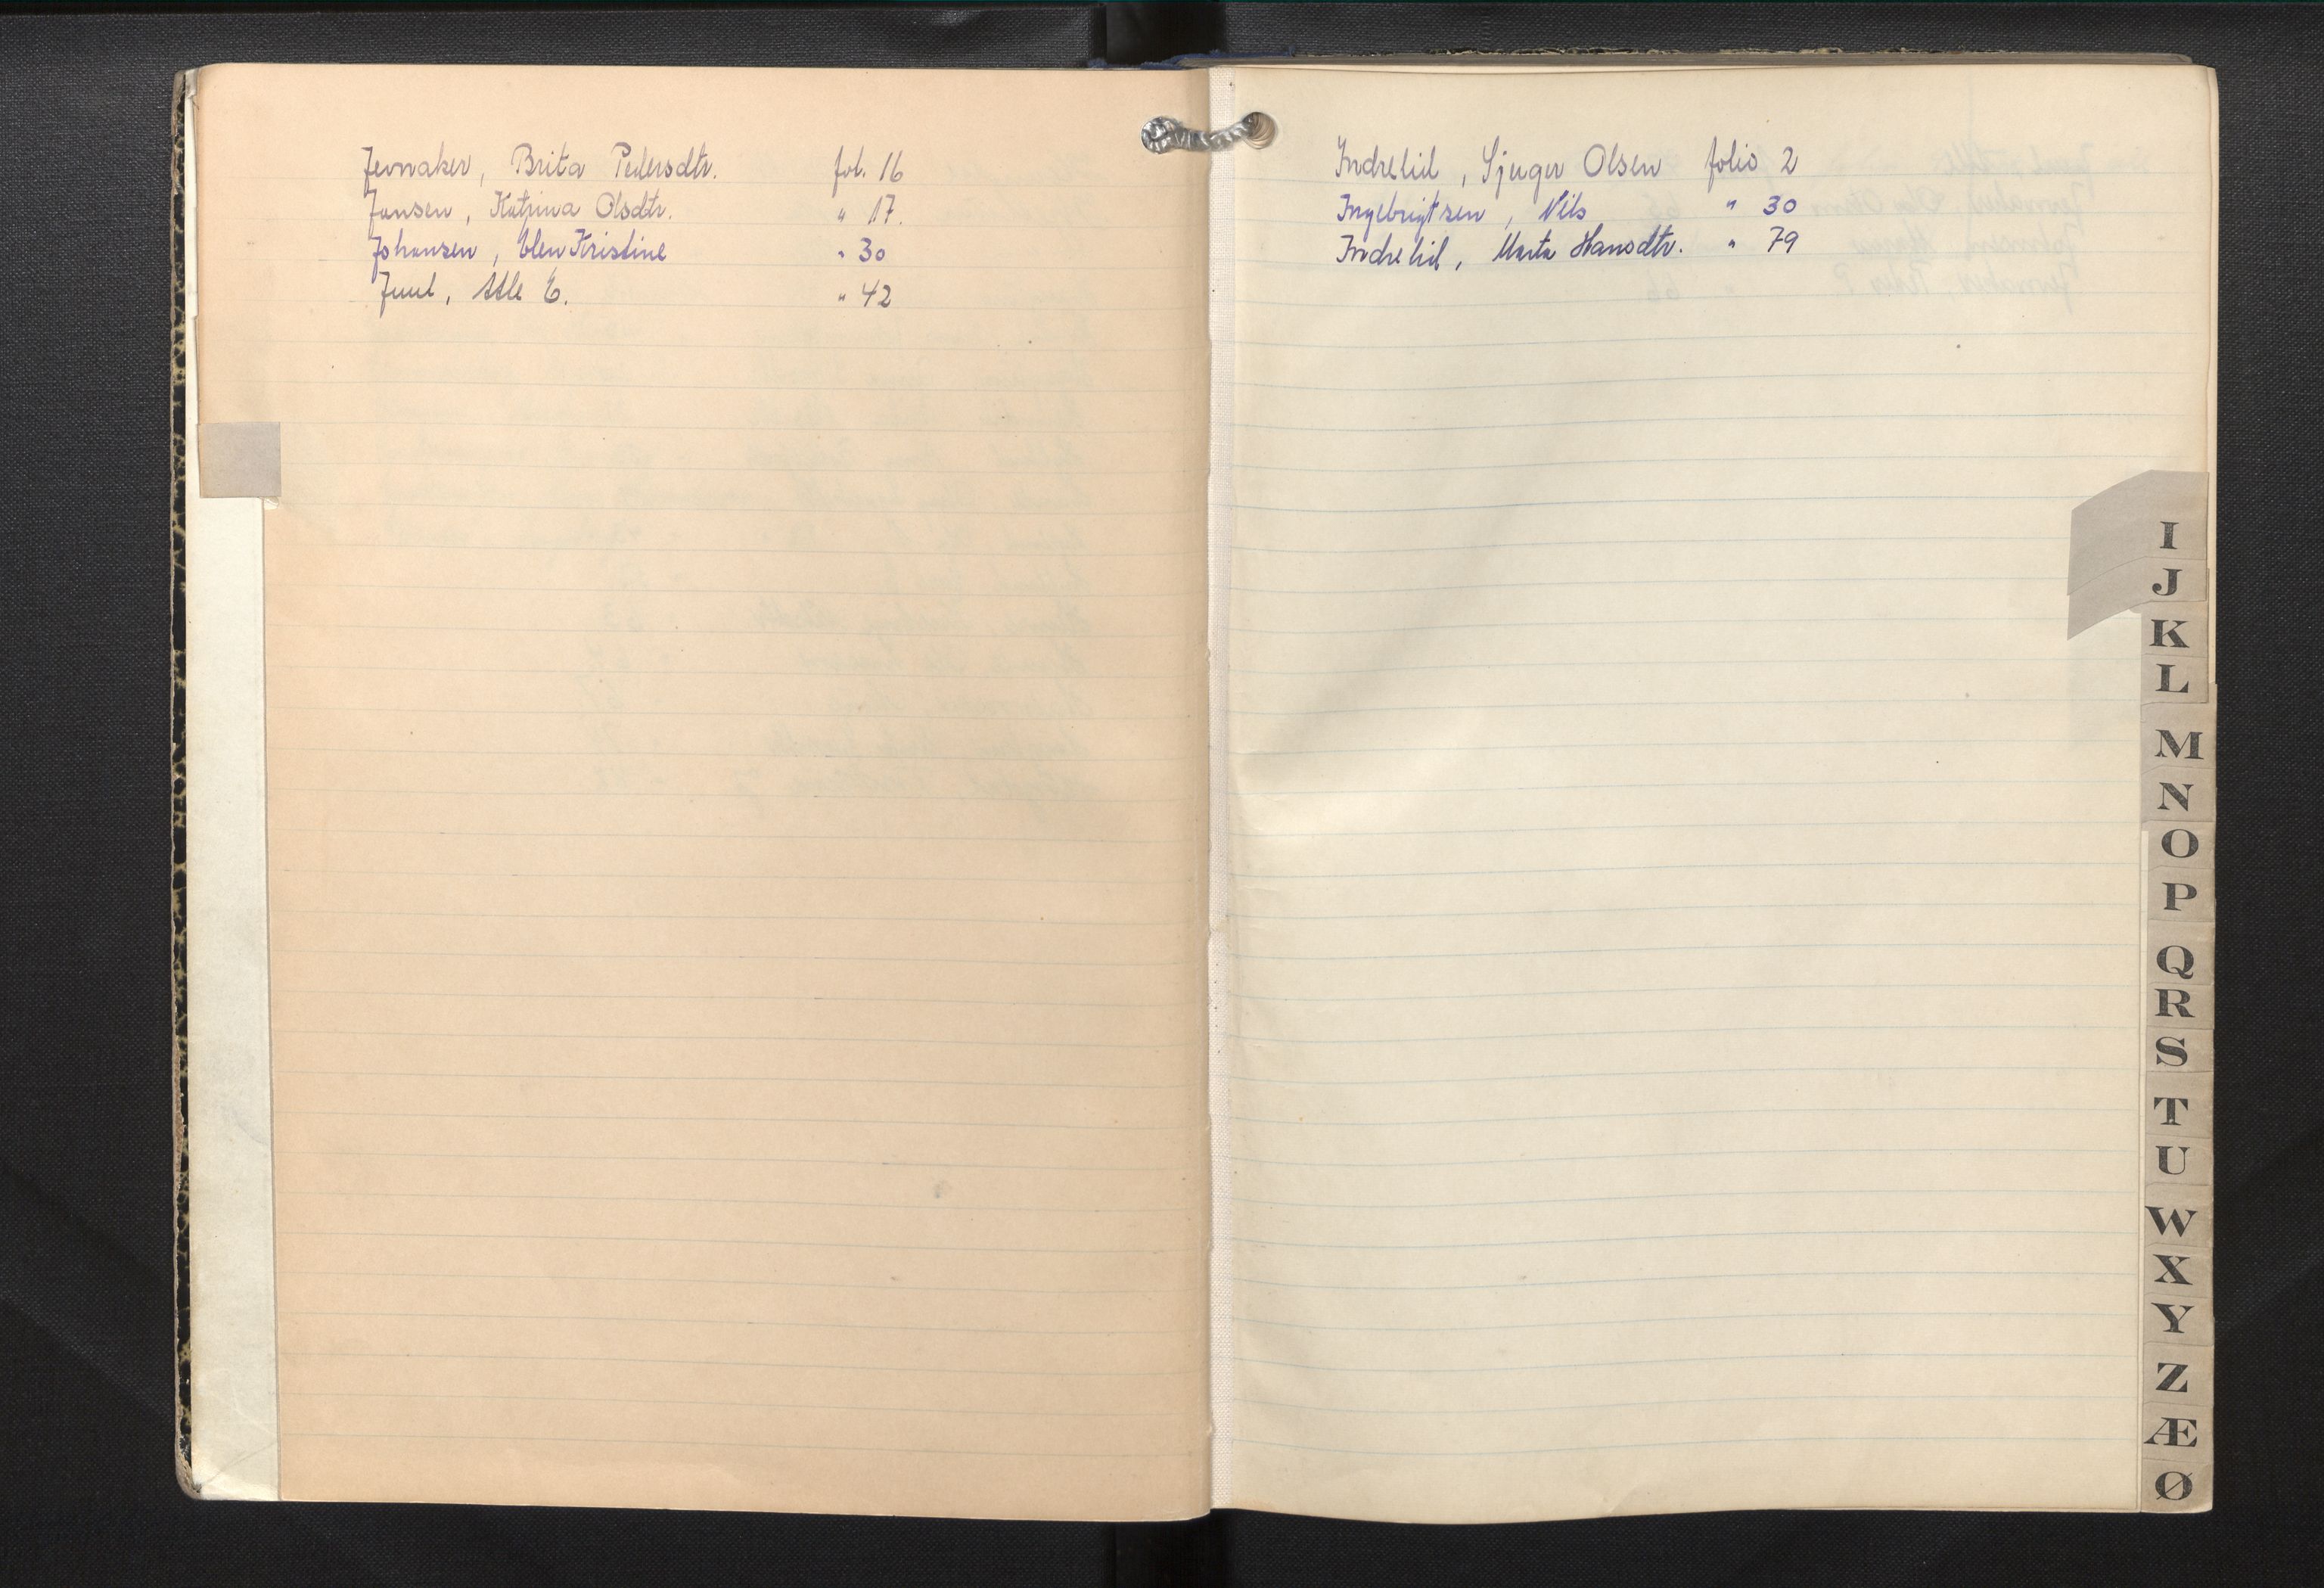 Jevnaker, Brita Pedersdtr. fol. 16
Jansen, Katrina Olsdtr. " 17.
Johansen, Elen Kristine " 30
Juul, Atle E. " 42
Indrelid, Sjugur Olsen folio 2
Ingebrigtsen, Nils " 30
Indrelid, Marta Hansdtr. " 79
I
J
K
L
M
N
O
P
Q
R
S
T
U
W
X
Y
Z
Æ
Ø